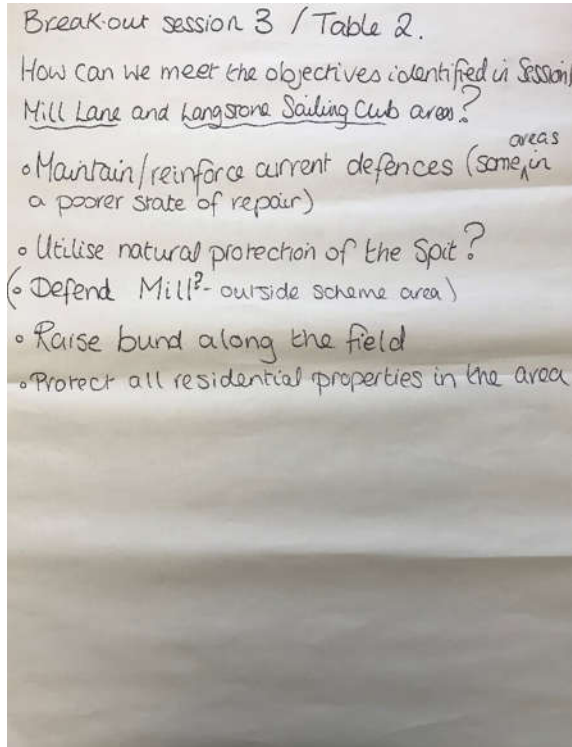 Break-out session 3 / Table 2.
How can we meet the objectives identified in Session
Mill Lane and Langstone Sailing Club areas?
• Maintain/reinforce current defences (some areas in
a poorer state of repair)
• Utilise natural protection of the Spit?
(• Defend Mill? - outside scheme area)
• Raise bund along the field
• Protect all residential properties in the area